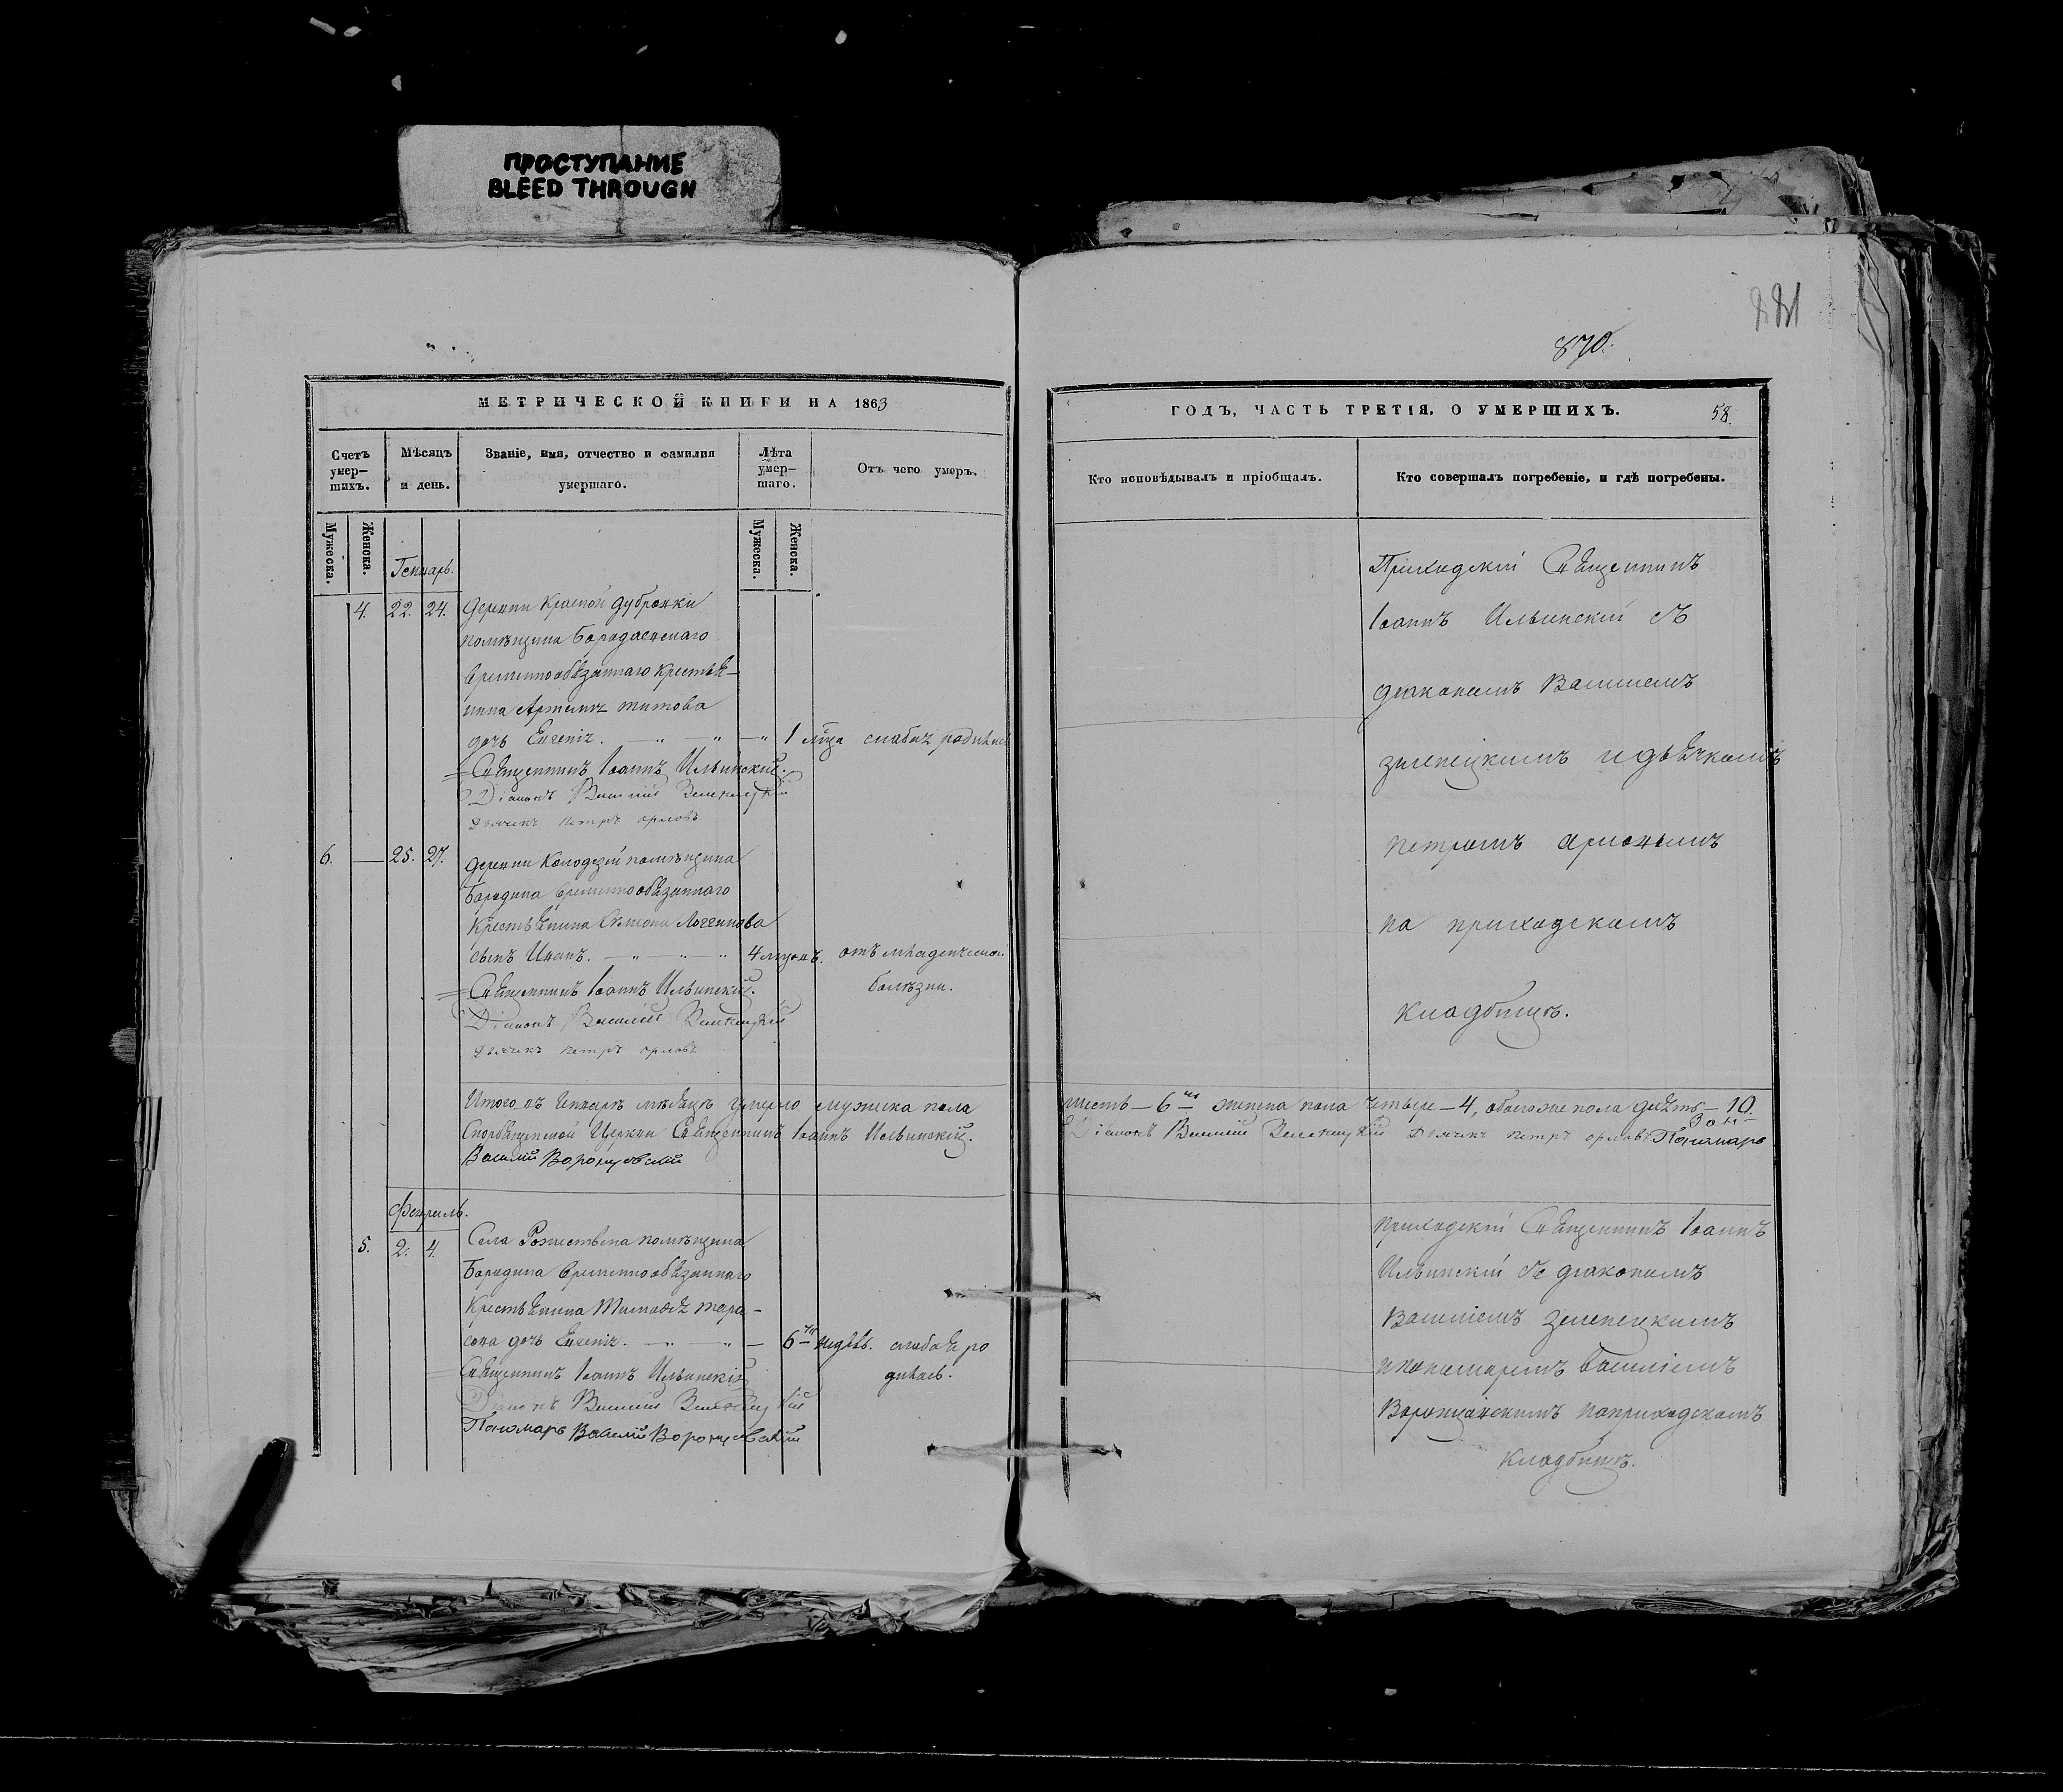 ПРОСТУПАНИЕ
BLEED THROUGH
881
870.
МЕТРИЧЕСКОЙ КНИГИ НА 1863
Счетъ умер-шихъ.
Мѣсяцъ и день.
Званіе, имя, отчество и фамилия умершаго.
Лѣта умер-шаго.
Отъ чего умеръ.
Мужеска.
Женска.
Мужеска.
Женска.
Генварь.
4. 22. 24. Деревни Красной Дубровки
помѣщика
временнообязаннаго крестья-
нина Артемия Титова
дочь Евгенія. 1 мца слабая родилась
Священникъ Іоаннъ Ильинскій.
Діаконъ Василій
Дьячекъ Петръ Орловъ
6. — 25. 27. Деревни Колодезей помѣщика
Бородина временнообязаннаго
крестьянина Семіона Логгинова
сынъ Иванъ. 4 отъ младенческой
болѣзни.
Священникъ Іоаннъ Ильинскій.
Діаконъ Василій
Дьячекъ Петръ Орловъ
Итого въ Генварѣ мѣсяцѣ умерло мужеска пола
Священникъ Іоаннъ Ильинскій.
Василій Воронцовскій
Февраль.
5. 2. 4. Села Рожествена помѣщика
Бородина временнообязаннаго
крестьянина Тимофея Тара-
сова дочь Евгенія. 6 недѣль. слабая ро
дилась.
Священникъ Іоаннъ Ильинскій
Діаконъ Василій
Пономарь Василій Воронцовскій
ГОДЪ, ЧАСТЬ ТРЕТІЯ, О УМЕРШИХЪ. 58.
Кто исповѣдывалъ и пріобщалъ.
Кто совершалъ погребеніе, и гдѣ погребены.
Приходскій Священникъ
Іоаннъ Ильинскій съ
діакономъ Василіемъ
Зеленецкимъ и дьячкомъ
Петромъ Орловымъ
на приходскомъ
кладбищѣ.
шесть — 6 женска пола четыре — 4, обоего же пола десять — 10.
Діаконъ Василій Дьячекъ Петръ Орловъ Пономарь
Приходскій Священникъ Іоаннъ
Ильинскій съ діакономъ
Василіемъ Зеленецкимъ
и пономаремъ Василіемъ
Воронцовскимъ на приходскомъ
кладбищѣ.